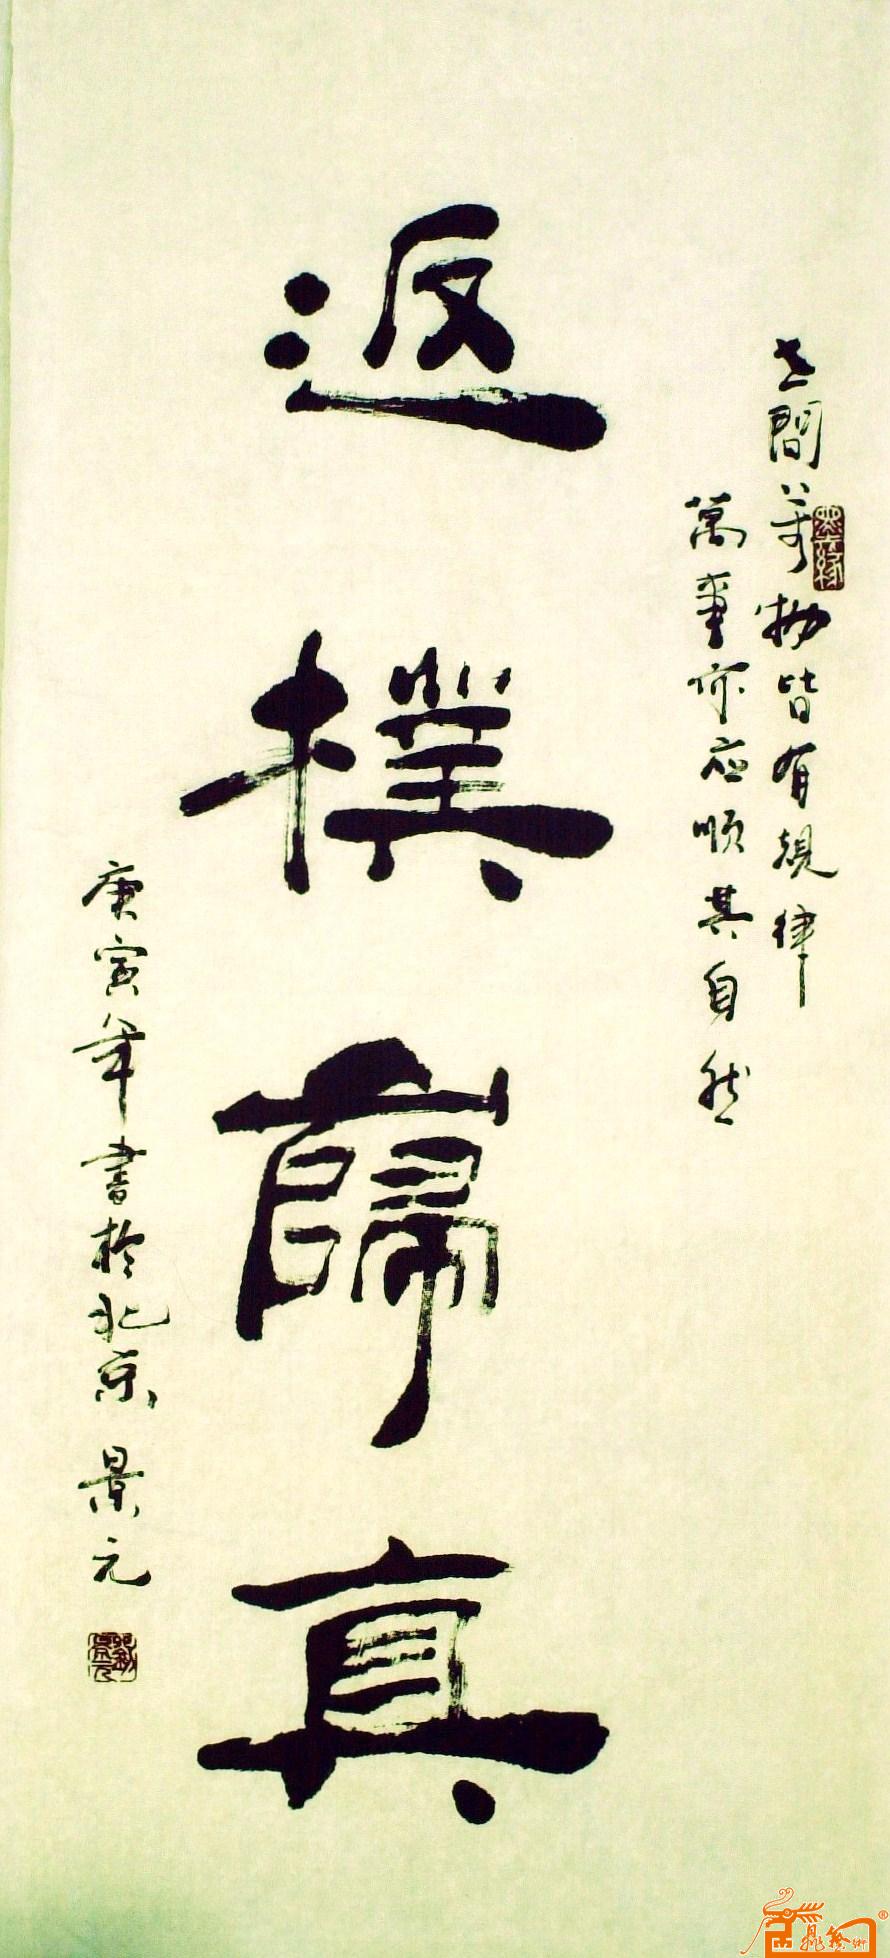 世間萬物皆有規律
萬事亦應順其自然
返樸歸真
庚寅年書於北京 景元